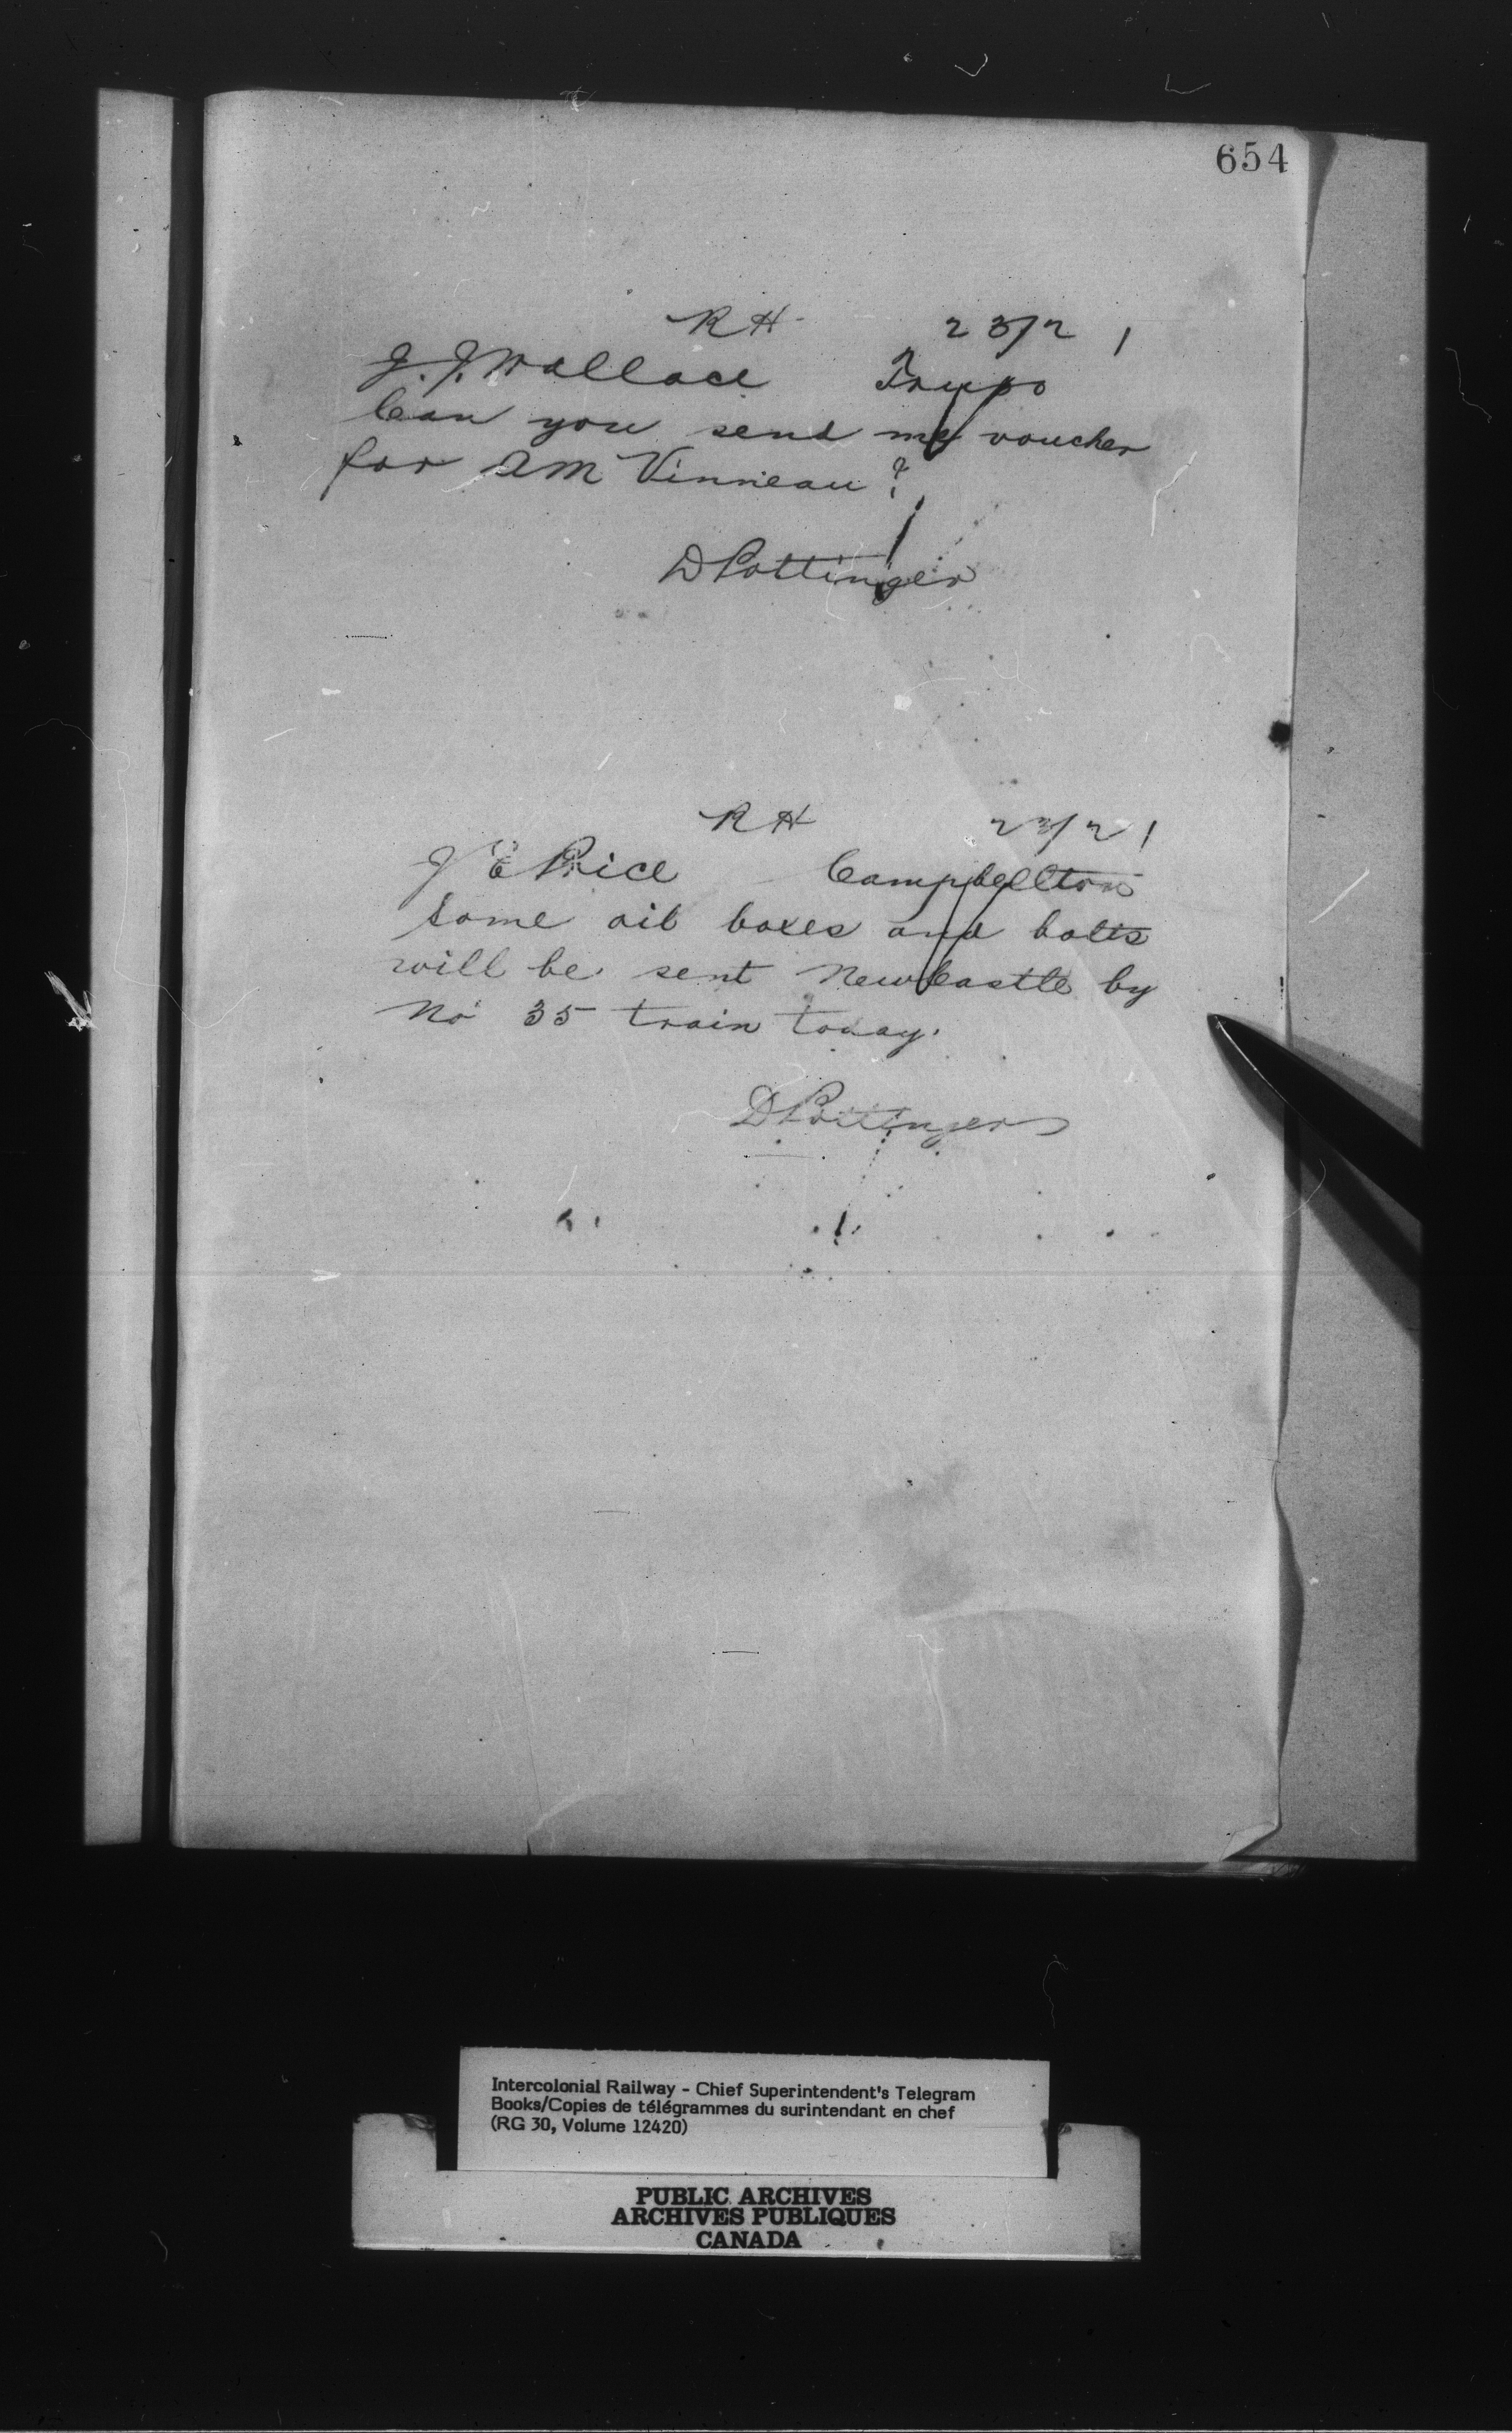 654
RH 23/2 1
J. J. Wallace Truro
Can you send me voucher
for AM Vinneau?
D Pottinger
RH 23/2 1
J E Price Campbellton
Some oil boxes and bolts
will be sent NewCastle by
No 35 train today.
D Pottinger
Intercolonial Railway - Chief Superintendent's Telegram
Books/Copies de télégrammes du surintendant en chef
(RG 30, Volume 12420)
PUBLIC ARCHIVES
ARCHIVES PUBLIQUES
CANADA